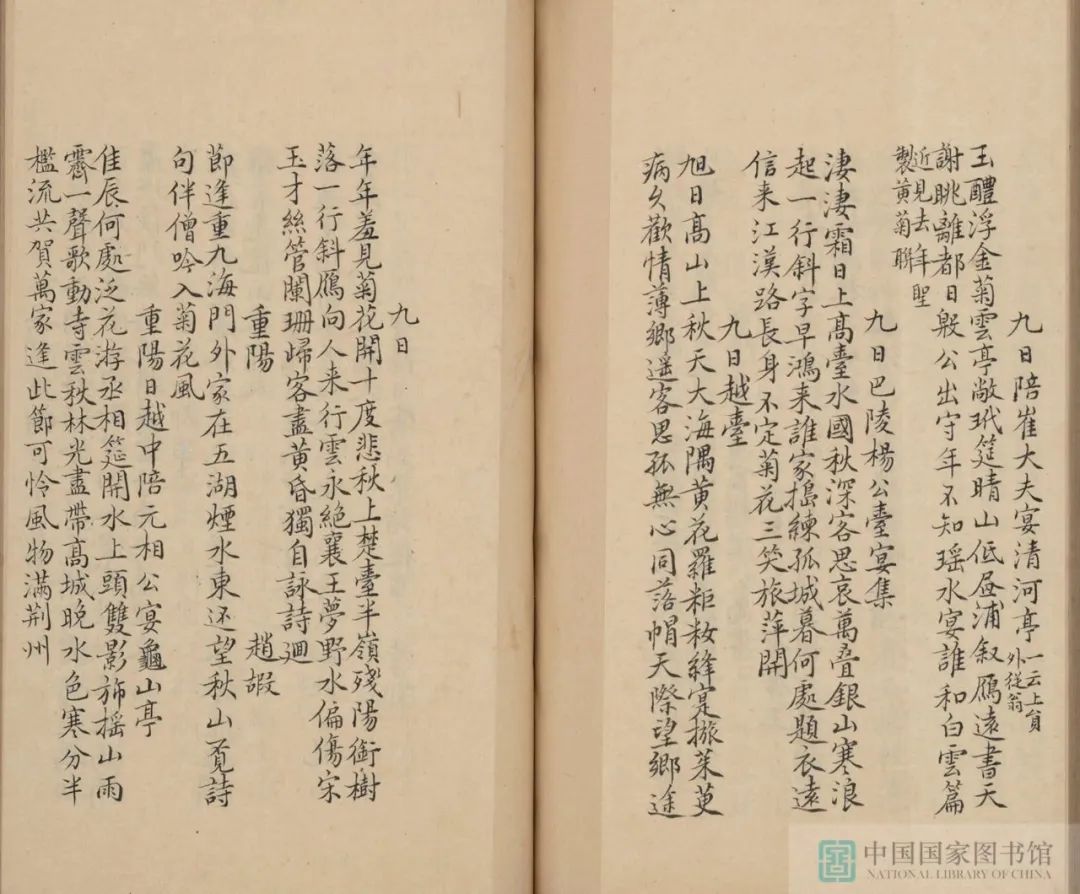 九日陪崔大夫宴清河亭
一云上貟
外從翁
玉醴浮金菊雲亭敞玳筵晴山低昼浦叙鴈遠書天
謝眺離都日殷公出守年不知瑶水宴誰和白雲篇
近見去年聖
製黄菊聯
九日巴陵楊公臺宴集
淒淒霜日上高臺水國秋深客思哀萬叠銀山寒浪
起一行斜字早鴻来誰家搗練孤城暮何處題衣遠
信来江漢路長身不定菊花三笑旅萍開
九日越臺
旭日高山上秋天大海隅黄花羅粔籹絳寔旅茱萸
病久歡情薄鄉遥客思孤無心同落帽天際望鄉途
九日
年年羞見菊花開十度悲秋上楚臺半嶺殘陽銜樹
落一行斜鴈向人来行雲永絕襄王夢野水偏傷宋
玉才絲管闌珊歸客盡黄昏獨自詠詩廻
重陽 趙嘏
節逢重九海門外家在五湖煙水東还望秋山覓詩
句伴僧吟入菊花風
重陽日越中陪元相公宴龜山亭
佳辰何處泛花游丞相筵開水上頭雙影旆揺山雨
霽一聲歌動寺雲秋林光盡帶高城晚水色寒分半
檻流共賀萬家逢此節可怜風物满荆州
中国国家图书馆
NATIONAL LIBRARY OF CHINA